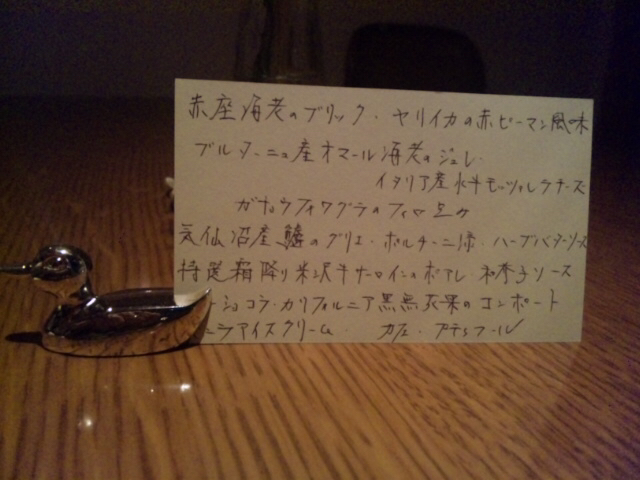 赤座海老のブリック・ヤリイカの赤ピーマン風味
ブルターニュ産オマール海老のジュレ・
イタリア産水牛モッツァレラチーズ
ガトーフォワグラの
気仙沼産 のグリエ・ポルチーニ添・ハーブバターソース
特選霜降り米沢牛サーロインのポアレ・和季子ソース
ショコラ・カリフォルニア黒無花果のコンポート
ニラアイスクリーム・ カフェ・プティフール